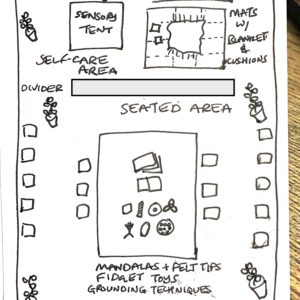 SENSORY
TENT
MATS
W/
BLANKET
&
CUSHIONS
SELF-CARE
AREA
DIVIDER
SEATED AREA
MANDALAS + FELT TIPS
FIDGET TOYS
GROUNDING TECHNIQUES